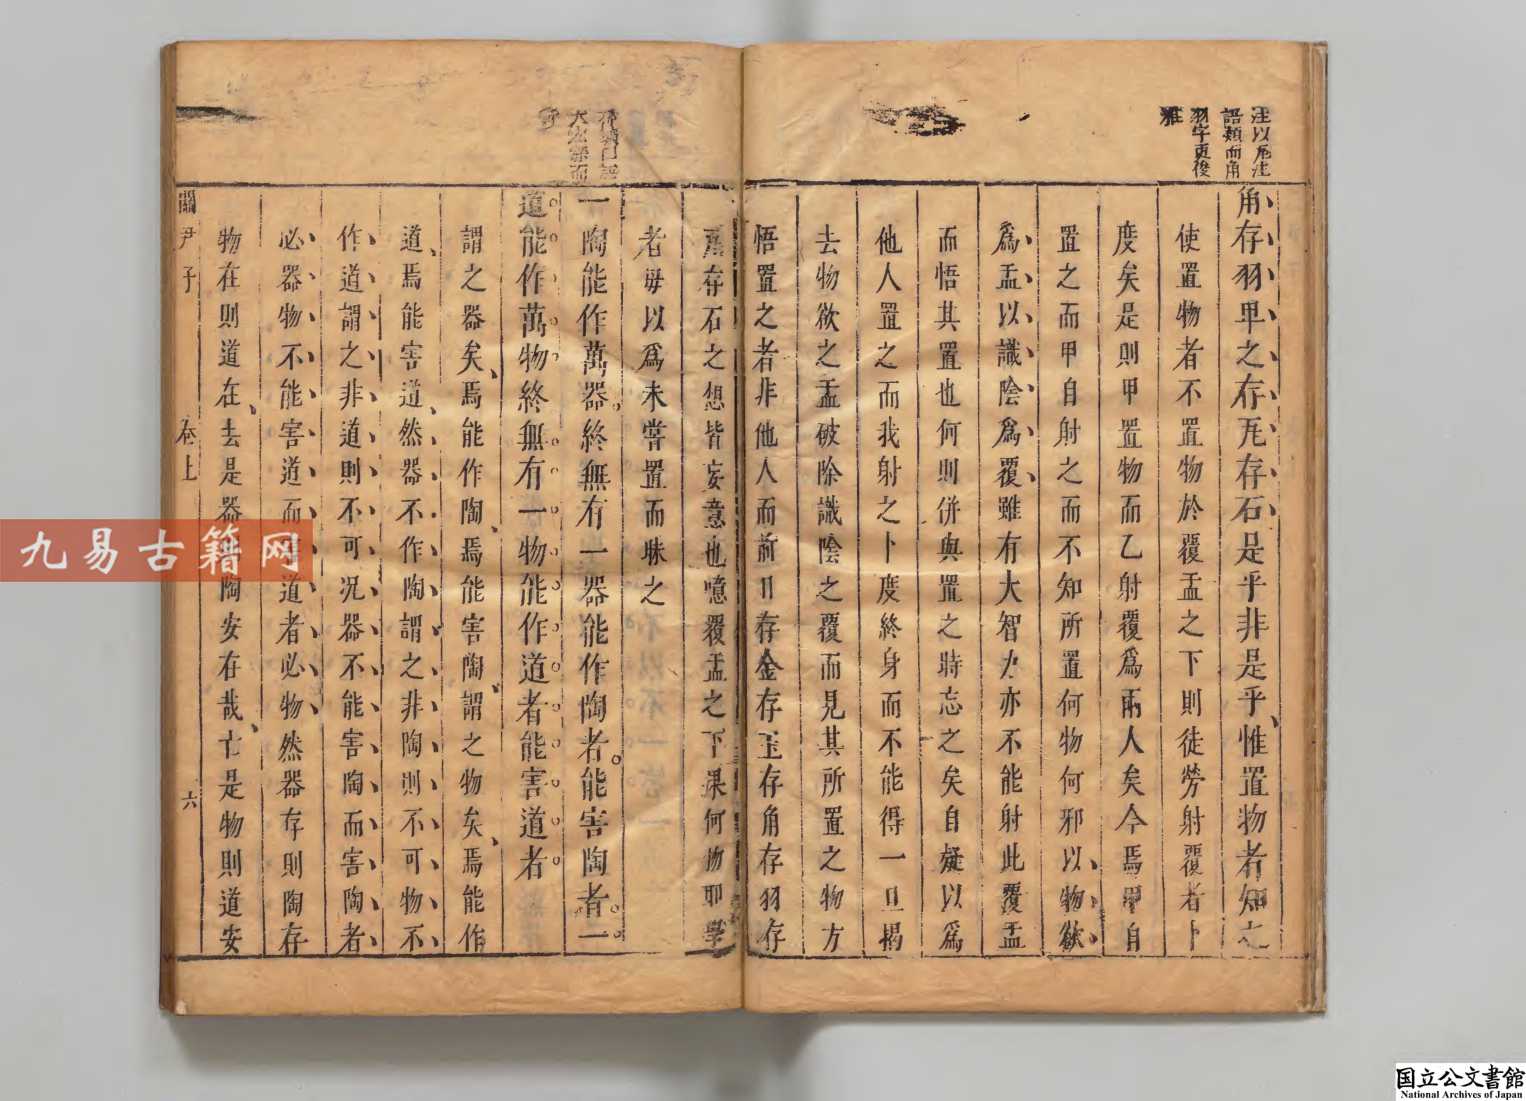 注以瓦注
語類而角
羽字更後
雅
角存羽卑之存瓦存石是乎非是乎惟置物者知之
使置物者不置物於覆盂之下則徒勞射覆者卜
度矣是則甲置物而乙射覆爲兩人矣今焉甲自
置之而甲自射之而不知所置何物何邪以物欲
爲盂以識陰爲覆雖有大智力亦不能射此覆盂
而悟其置也何則併與置之時忘之矣自疑以爲
他人置之而我射之卜度終身而不能得一旦揭
去物欲之盂破除識陰之覆而見其所置之物方
悟置之者非他人而前日存金存玉存角存羽存
瓦存石之想皆妄意也噫覆盂之下果何物耶學
者毋以爲未嘗置而昧之
一陶能作萬器終無有一器能作陶者能害陶者一
道能作萬物終無有一物能作道者能害道者
謂之器矣焉能作陶焉能害陶謂之物矣焉能作
道焉能害道然器不作陶謂之非陶則不可物不
作道謂之非道則不可况器不能害陶而害陶者
必器物不能害道而害道者必物然器存則陶存
物在則道在去是器陶安在哉亡是物則道安
關尹子
卷上
六
九易古籍网
国立公文書館
National Archives of Japan